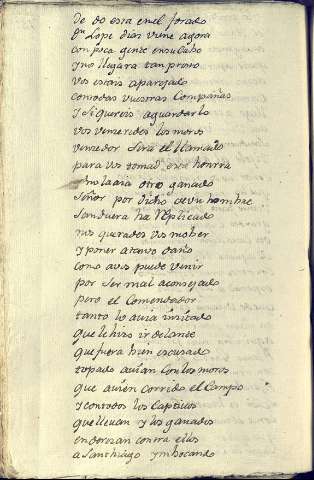 de do esta en el forado
Dn Lope dias viene agora
con poca gente en su cabo
y no llegara tan presto
vos estais aparejado
con todas vuestras Compañas
y si quereis aguardarlo
vos venceredes los moros
vencedor sera el llamado
para vos tomad este honrra
no la aia otro ganado
señor por dicho de vn hombre
Sandueza ha Replicado
nos querades vos mober
y poner a tanto daño
como a vis puede venir
por ser mal aconsejado
pero el Comendador
tanto lo auia incitado
que le hizo ir delante
que fuera bien escusado
topado auian con los moros
que auien corrido el Campo
y con todos los Captiuos
que lleuan y los ganados
enderezan contra ellos
a Santhiago ynbocando